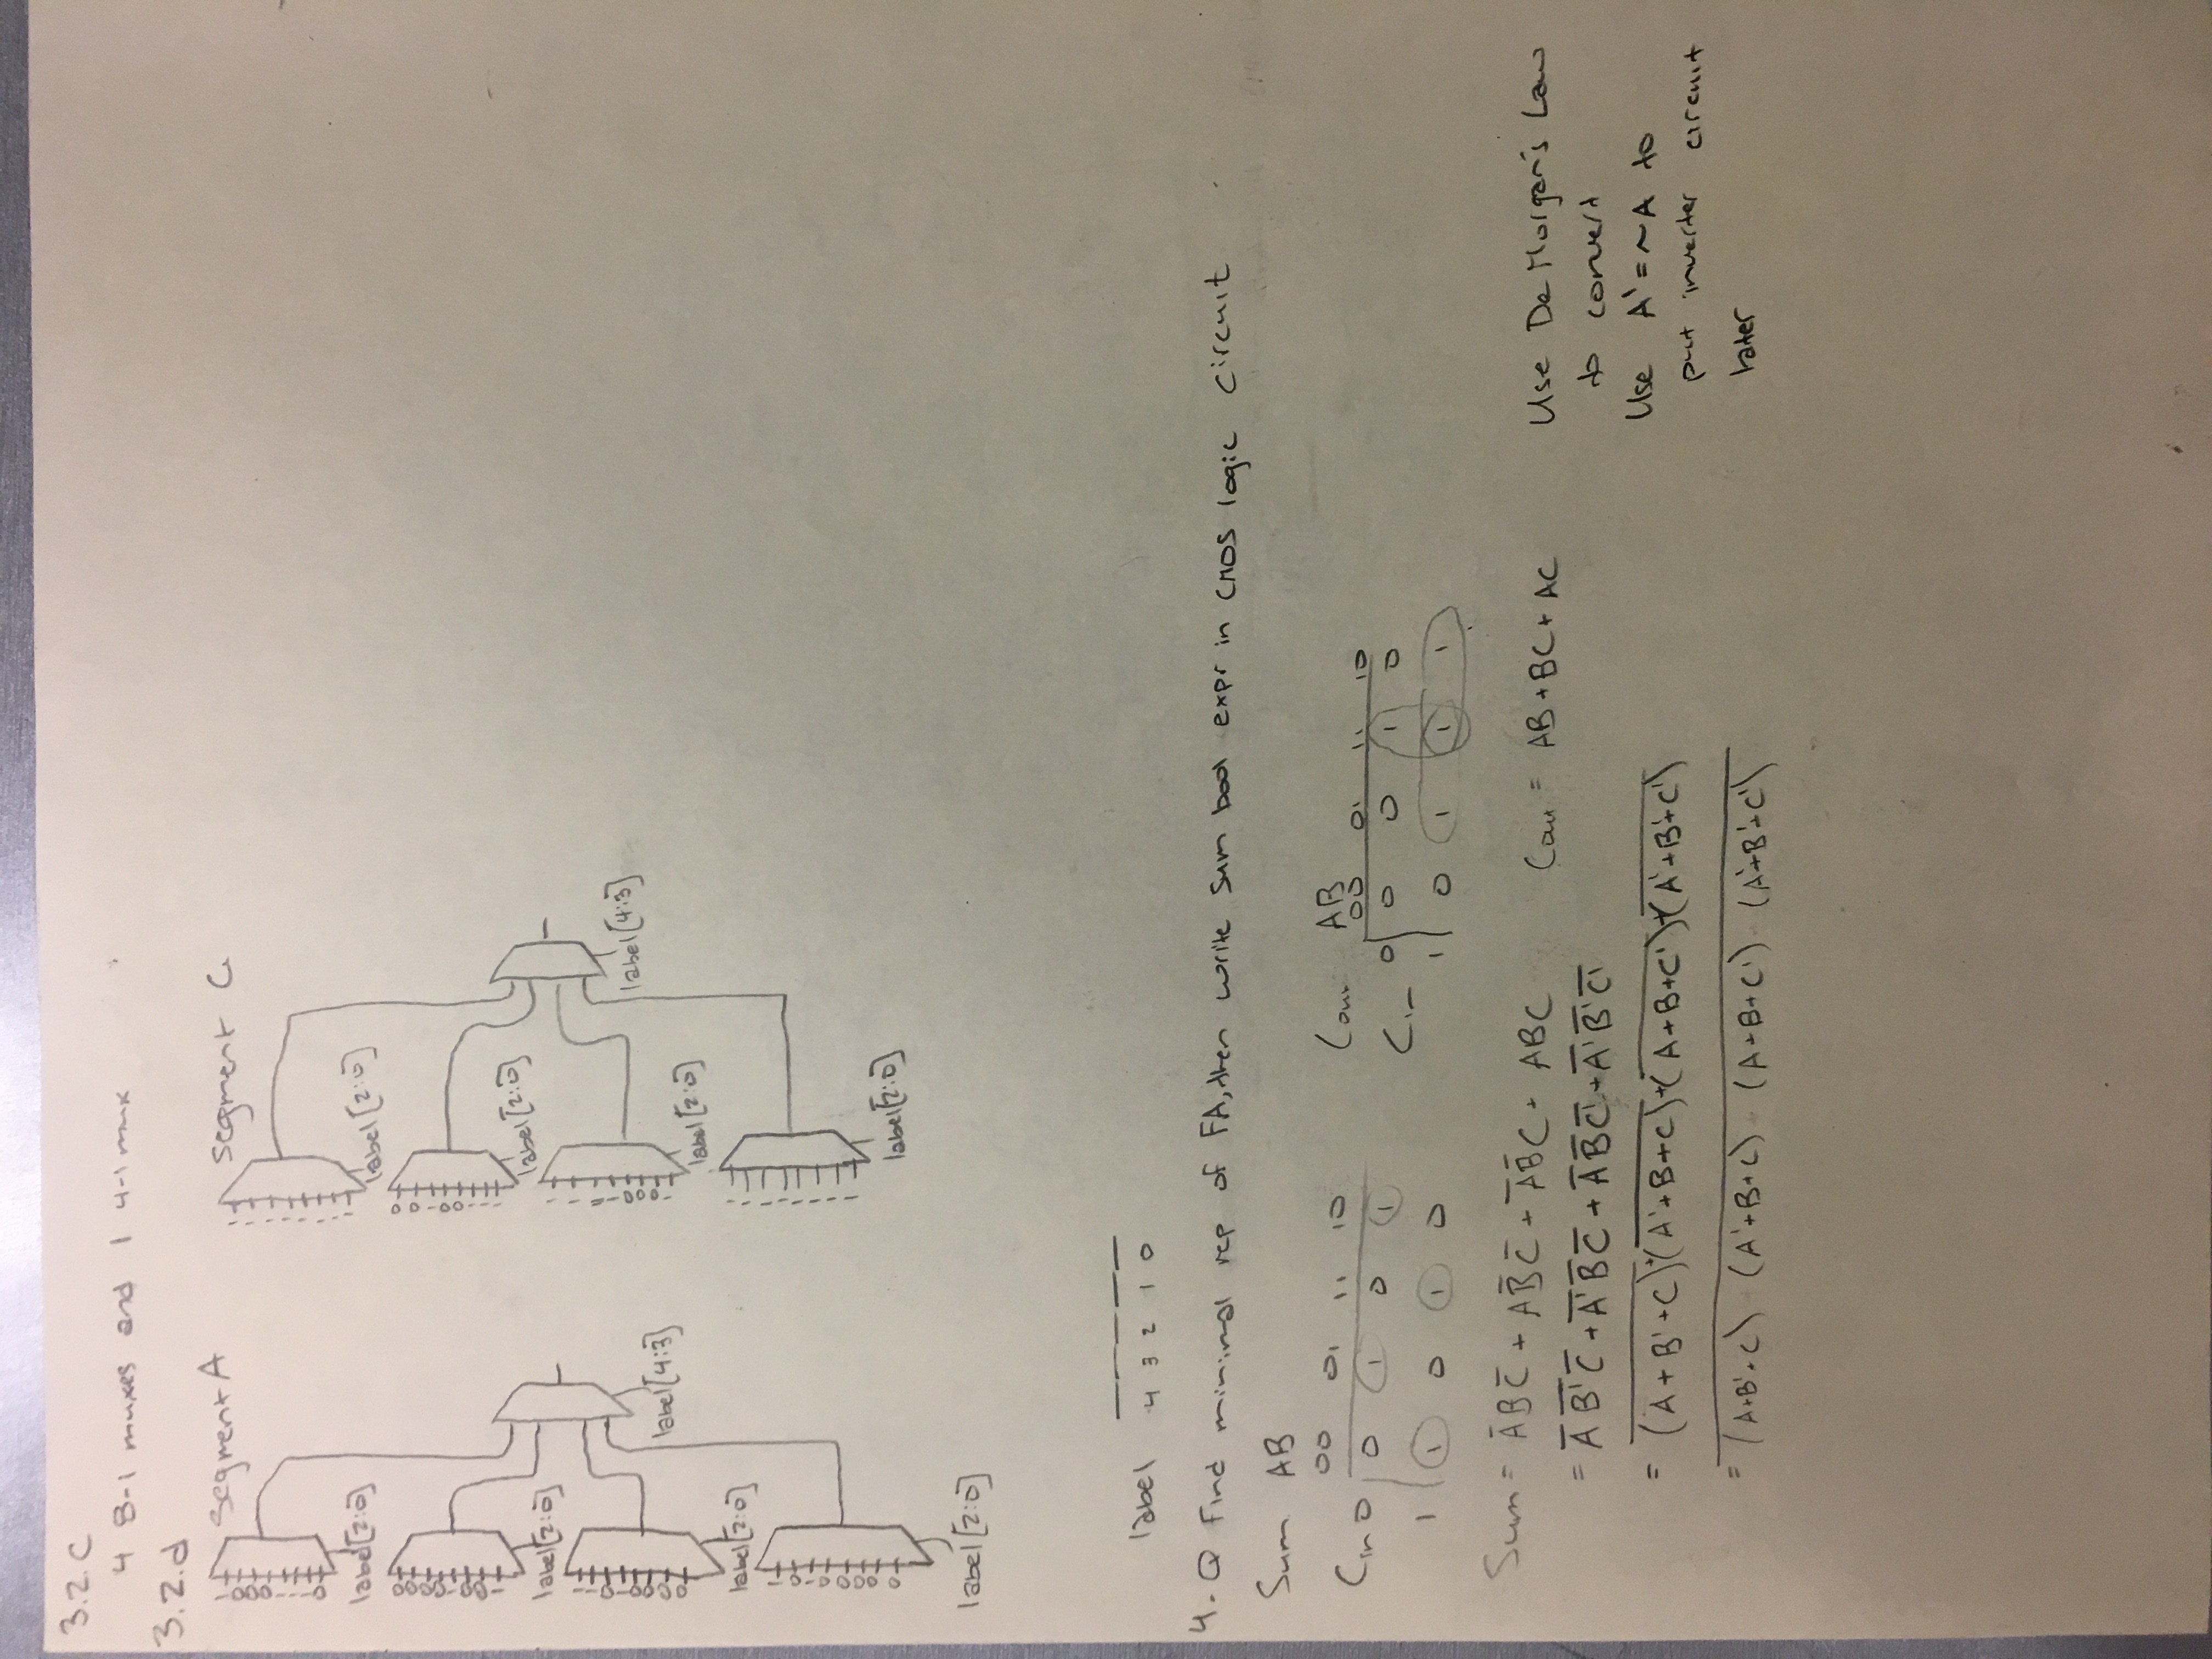 3.2.c
4 8-1 muxes and 1 4-1 mux
3.2.d
segment A
label[2:0]
label[2:0]
label[2:0]
label[2:0]
label[4:3]
segment G
label[2:0]
label[2:0]
label[2:0]
label[2:0]
label[4:3]
label 4 3 2 1 0
4. Q Find minimal rep of FA, then write sum bool expr in CMOS logic circuit
Sum AB
00 01 11 10
Cin 0 0 1 0 1
1 1 0 1 0
Cout AB
00 01 11 10
Cin 0 0 0 1 0
1 0 1 1 1
Sum = A̅BC̅ + AB̅C̅ + A̅B̅C + ABC
= A̅ B̅'̅ C̅ + A̅'̅ B̅ C̅ + A̅ B̅ C̅'̅ + A̅'̅ B̅'̅ C̅'̅
= (A+B'+C) + (A'+B+C) + (A+B+C') + (A'+B'+C')
= (A+B'+C) (A'+B+C) (A+B+C') (A'+B'+C')
Cout = AB + BC + AC
Use De Morgan's Law
to convert
Use A' = ~A to
put inverter circuit
later